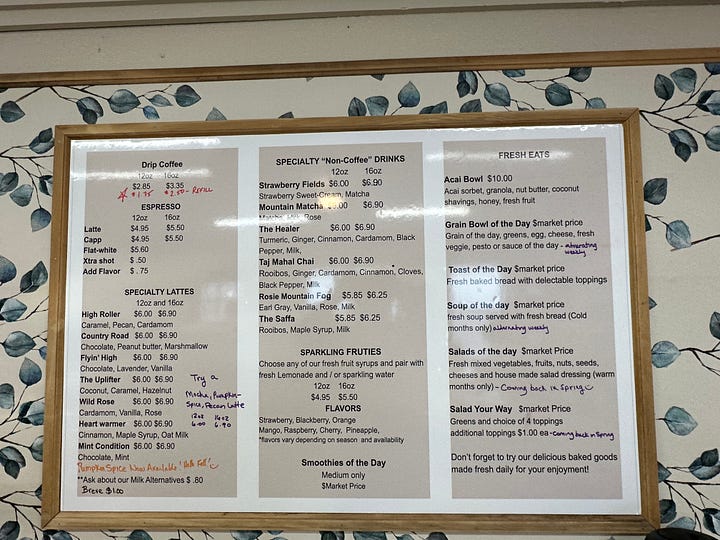 Drip Coffee
12oz 16oz
$2.85 $3.35
$1.75 $2.50 - REFILL
ESPRESSO
12oz 16oz
Latte $4.95 $5.50
Capp $4.95 $5.50
Flat-white $5.60
Xtra shot $ .50
Add Flavor $ .75
SPECIALTY LATTES
12oz and 16oz
High Roller $6.00 $6.90
Caramel, Pecan, Cardamom
Country Road $6.00 $6.90
Chocolate, Peanut butter, Marshmallow
Flyin' High $6.00 $6.90
Chocolate, Lavender, Vanilla
The Uplifter $6.00 $6.90
Coconut, Caramel, Hazelnut
Wild Rose $6.00 $6.90
Cardamom, Vanilla, Rose
Heart warmer $6.00 $6.90
Cinnamon, Maple Syrup, Oat Milk
Mint Condition $6.00 $6.90
Chocolate, Mint
Pumpkin Spice Now Available! Hello Fall!
**Ask about our Milk Alternatives $ .80
Breve $1.00
Try a
Mocha, Pumpkin-
Spice, Pecan Latte
12oz 16oz
6.00 6.90
SPECIALTY "Non-Coffee" DRINKS
12oz 16oz
Strawberry Fields $6.00 $6.90
Strawberry Sweet-Cream, Matcha
Mountain Matcha $6.00 $6.90
Matcha, Milk, Rose
The Healer $6.00 $6.90
Turmeric, Ginger, Cinnamon, Cardamom, Black
Pepper, Milk
Taj Mahal Chai $6.00 $6.90
Rooibos, Ginger, Cardamom, Cinnamon, Cloves,
Black Pepper, Milk
Rosie Mountain Fog $5.85 $6.25
Earl Gray, Vanilla, Rose, Milk
The Saffa $5.85 $6.25
Rooibos, Maple Syrup, Milk
SPARKLING FRUTIES
Choose any of our fresh fruit syrups and pair with
fresh Lemonade and / or sparkling water
12oz 16oz
$4.95 $5.50
FLAVORS
Strawberry, Blackberry, Orange
Mango, Raspberry, Cherry, Pineapple,
*flavors vary depending on season and availability
Smoothies of the Day
Medium only
$Market Price
FRESH EATS
Acai Bowl $10.00
Acai sorbet, granola, nut butter, coconut
shavings, honey, fresh fruit
Grain Bowl of the Day $market price
Grain of the day, greens, egg, cheese, fresh
veggie, pesto or sauce of the day - alternating
weekly
Toast of the Day $market price
Fresh baked bread with delectable toppings
Soup of the day $market price
fresh soup served with fresh bread (Cold
months only) alternating weekly
Salads of the day $Market Price
Fresh mixed vegetables, fruits, nuts, seeds,
cheeses and house made salad dressing (warm
months only) - Coming back in Spring
Salad Your Way $Market Price
Greens and choice of 4 toppings
additional toppings $1.00 ea - coming back in Spring
Don't forget to try our delicious baked goods
made fresh daily for your enjoyment!